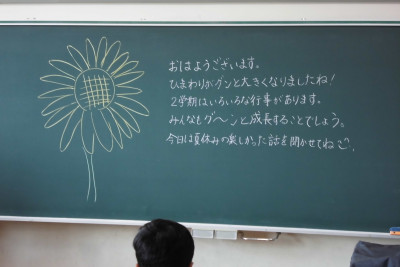 おはようございます。
ひまわりがグンと大きくなりましたね!
2学期はいろいろな行事があります。
みんなもグ〜ンと成長することでしょう。
今日は夏休みの楽しかった話を聞かせてねっ。